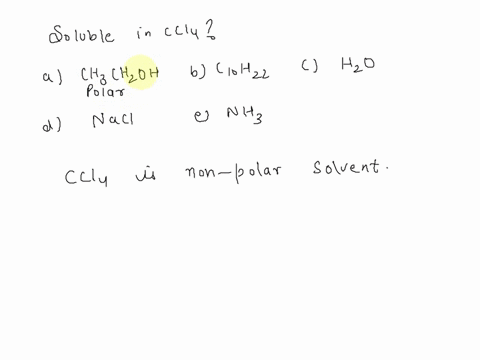 Soluble in CCl4?
a) CH3CH2OH b) C10H22 c) H2O
Polar
d) NaCl e) NH3
CCl4 is non-polar solvent.